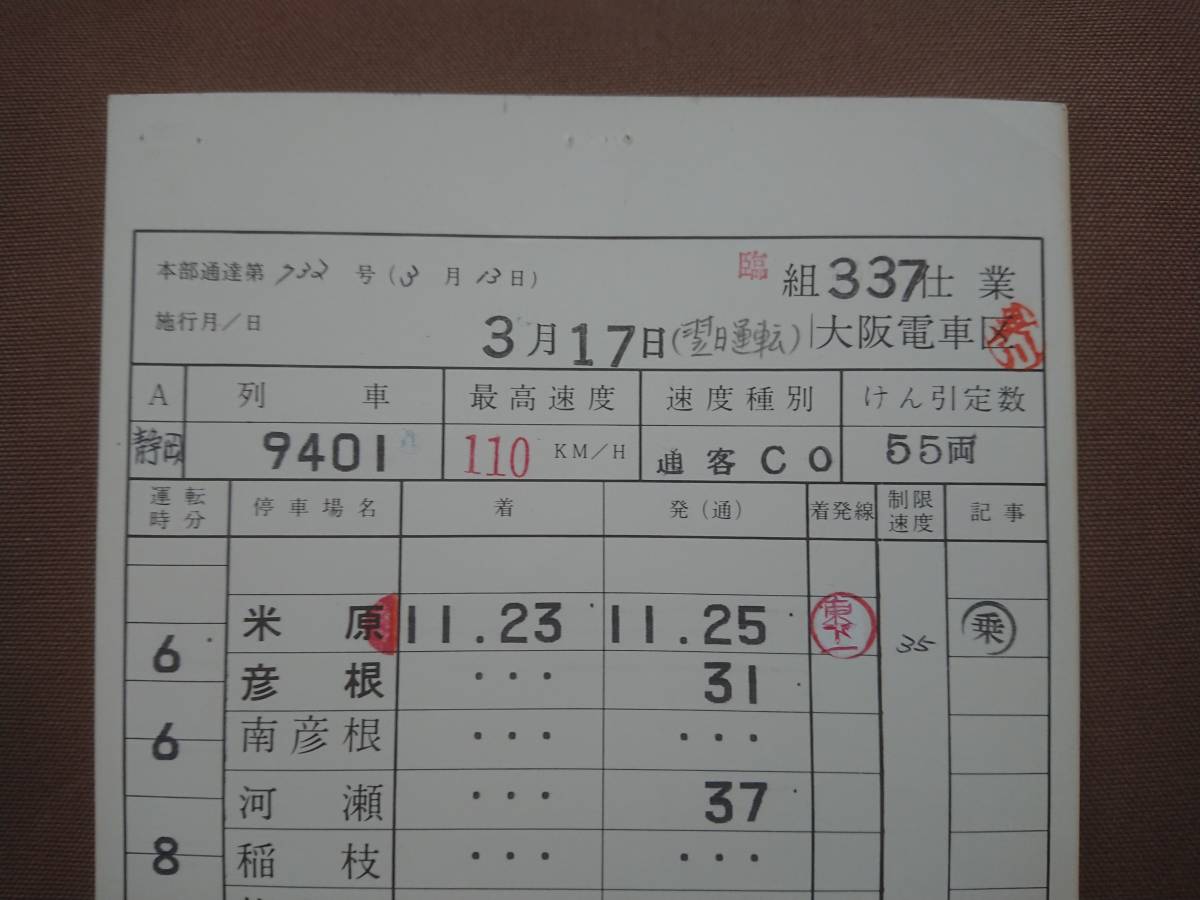 本部通達第 732 号 (3 月 13 日)
臨 組 337 仕 業
施行月/日 3月17日 (翌日運転) 大阪電車区
A 列 車 最高速度 速度種別 けん引定数
静岡 9401 110 KM/H 通 客 C 0 55両
運転時分 停車場名 着 発(通) 着発線 制限速度 記事
米 原 11.23 11.25 東下一 35 乗
6
彦 根 ・・・ 31
南彦根 ・・・ ・・・
6
河 瀬 ・・・ 37
稲 枝 ・・・ ・・・
8